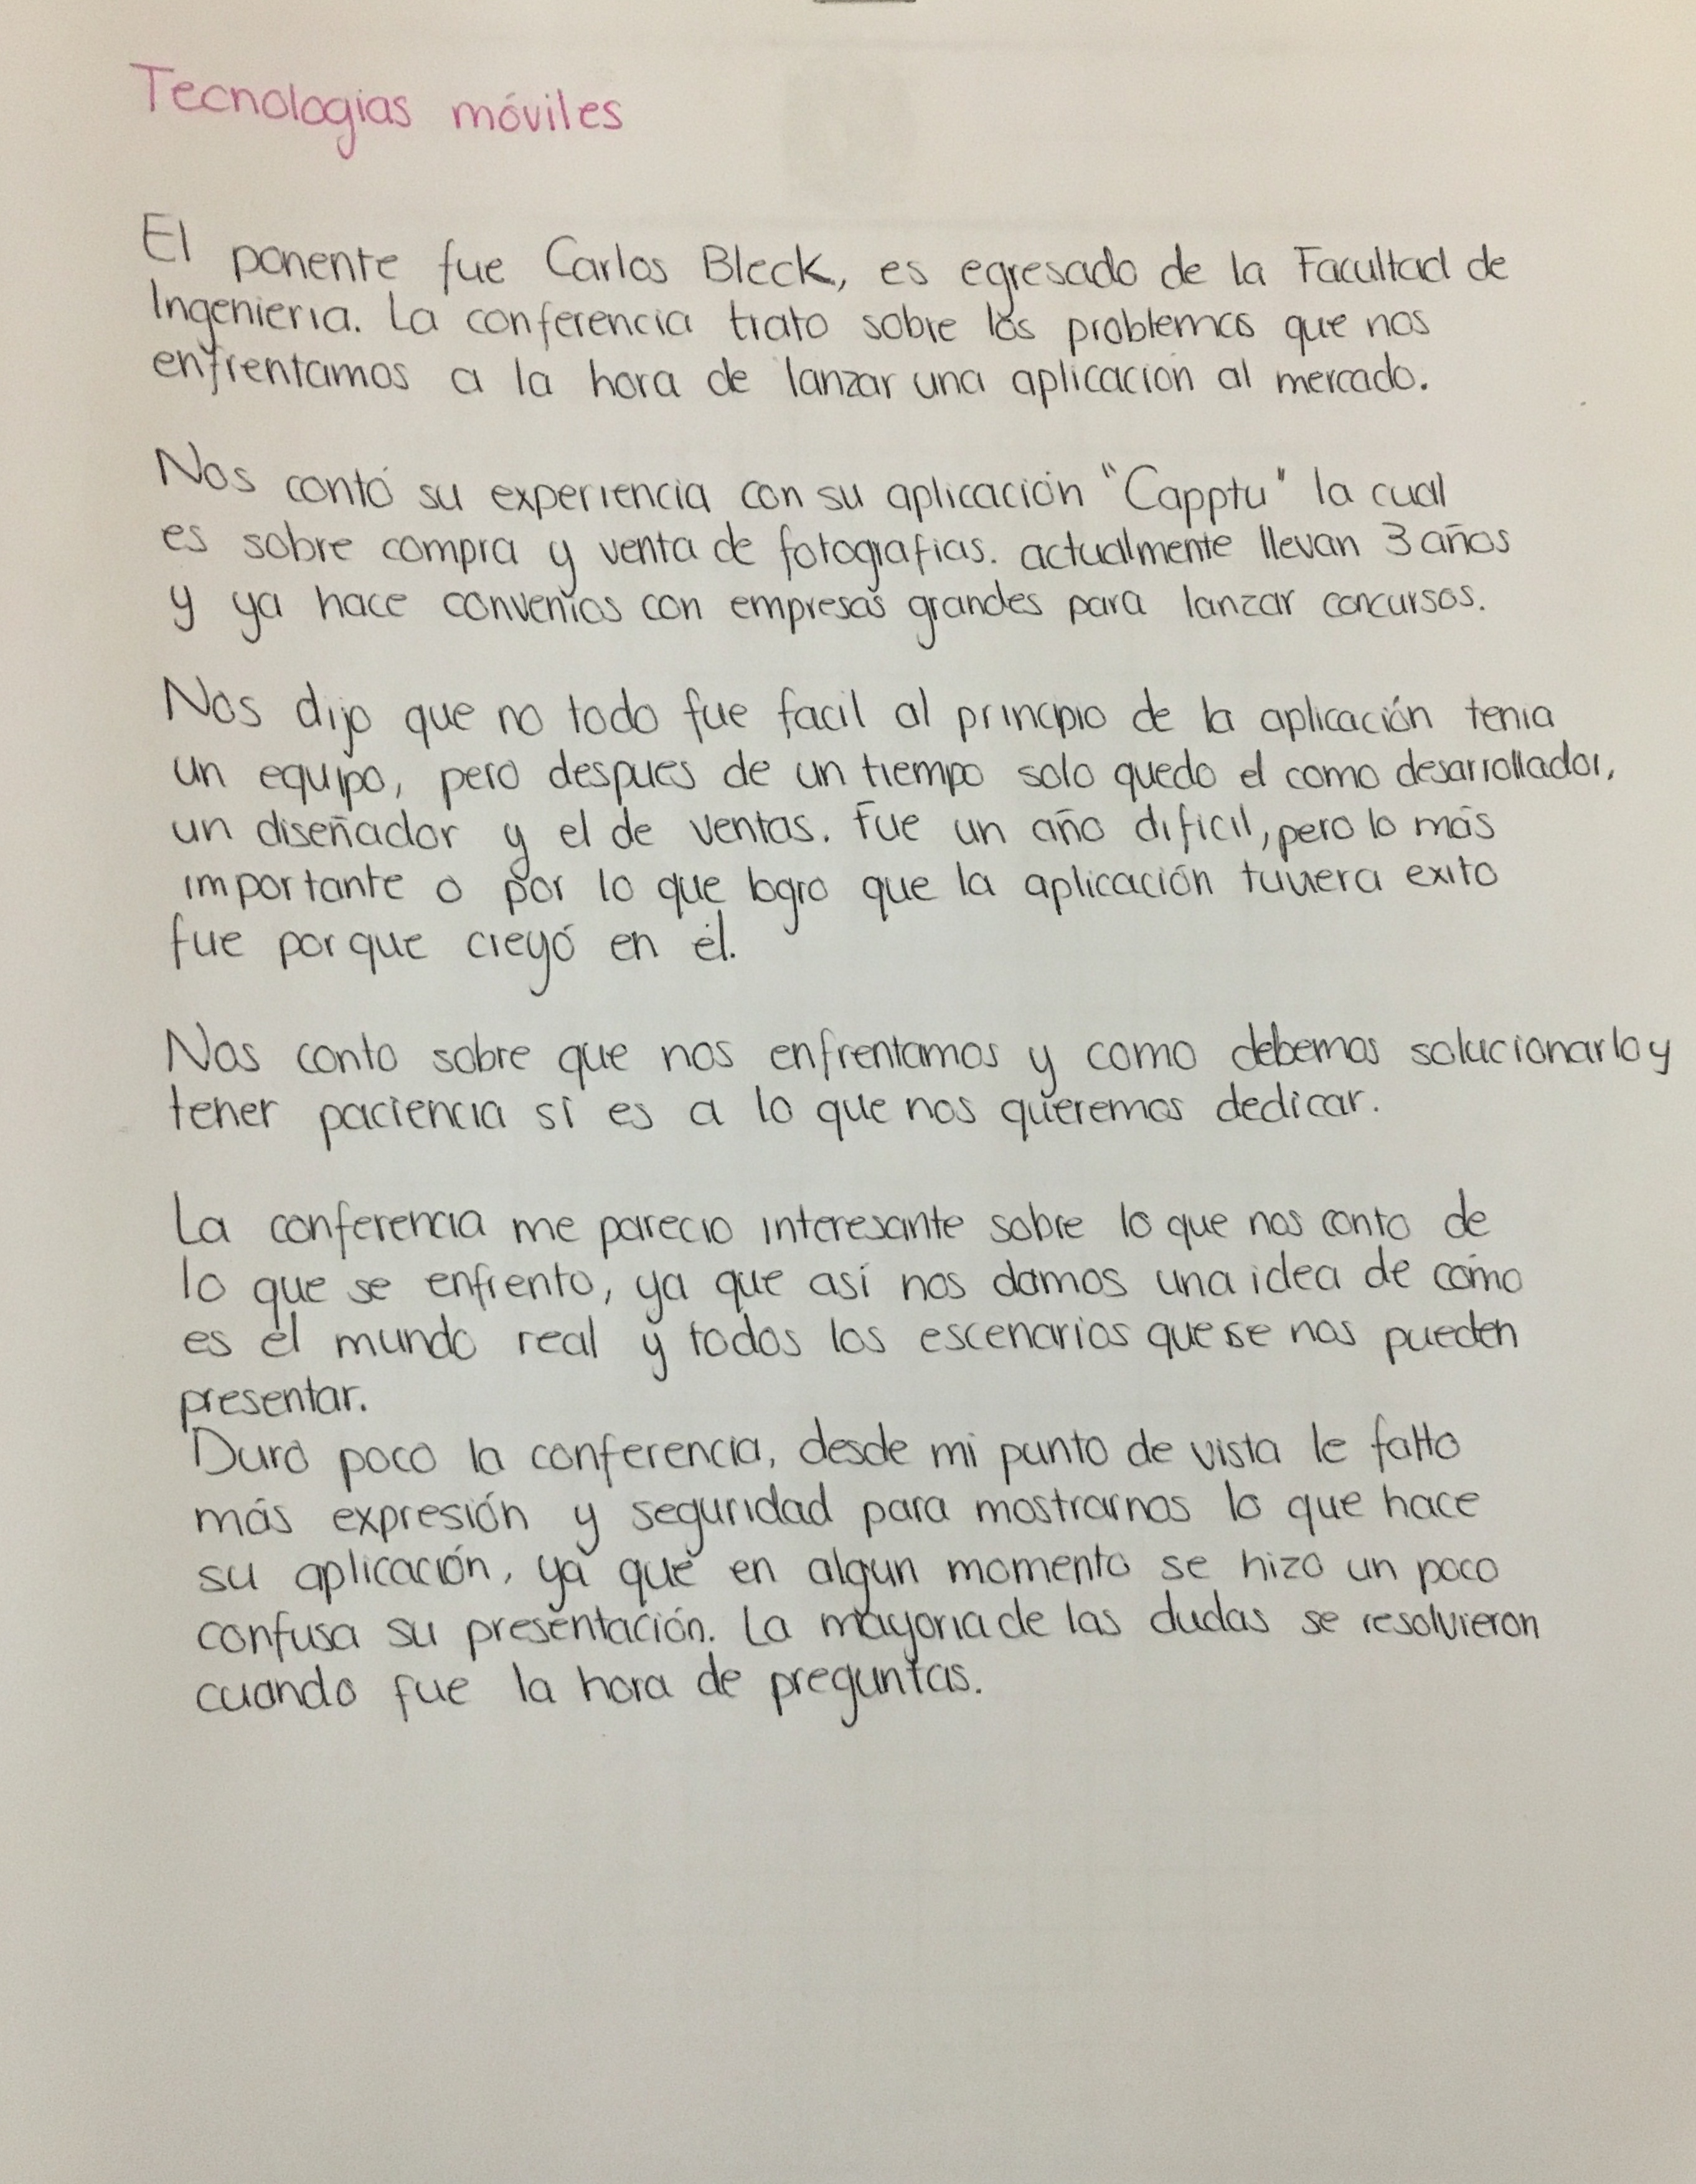 Tecnologias móviles
El ponente fue Carlos Bleck, es egresado de la Facultad de
Ingenieria. La conferencia trato sobre los problemas que nos
enfrentamos a la hora de lanzar una aplicacion al mercado.
Nos contó su experiencia con su aplicación "Capptu" la cual
es sobre compra y venta de fotografias. actualmente llevan 3 años
y ya hace convenios con empresas grandes para lanzar concursos.
Nos dijo que no todo fue facil al princpio de la aplicación tenia
un equipo, pero despues de un tiempo solo quedo el como desarrollador,
un diseñador y el de ventas. Fue un año dificil, pero lo más
importante o por lo que logro que la aplicación tuviera exito
fue porque creyó en él.
Nos conto sobre que nos enfrentamos y como debemos solucionarlo y
tener paciencia si es a lo que nos queremos dedicar.
La conferencia me parecio interesante sobre lo que nos conto de
lo que se enfrento, ya que así nos damos una idea de como
es el mundo real y todos los escenarios que se nos pueden
presentar.
Duró poco la conferencia, desde mi punto de vista le falto
más expresión y seguridad para mostrarnos lo que hace
su aplicación, ya que en algun momento se hizo un poco
confusa su presentación. La mayoria de las dudas se resolvieron
cuando fue la hora de preguntas.